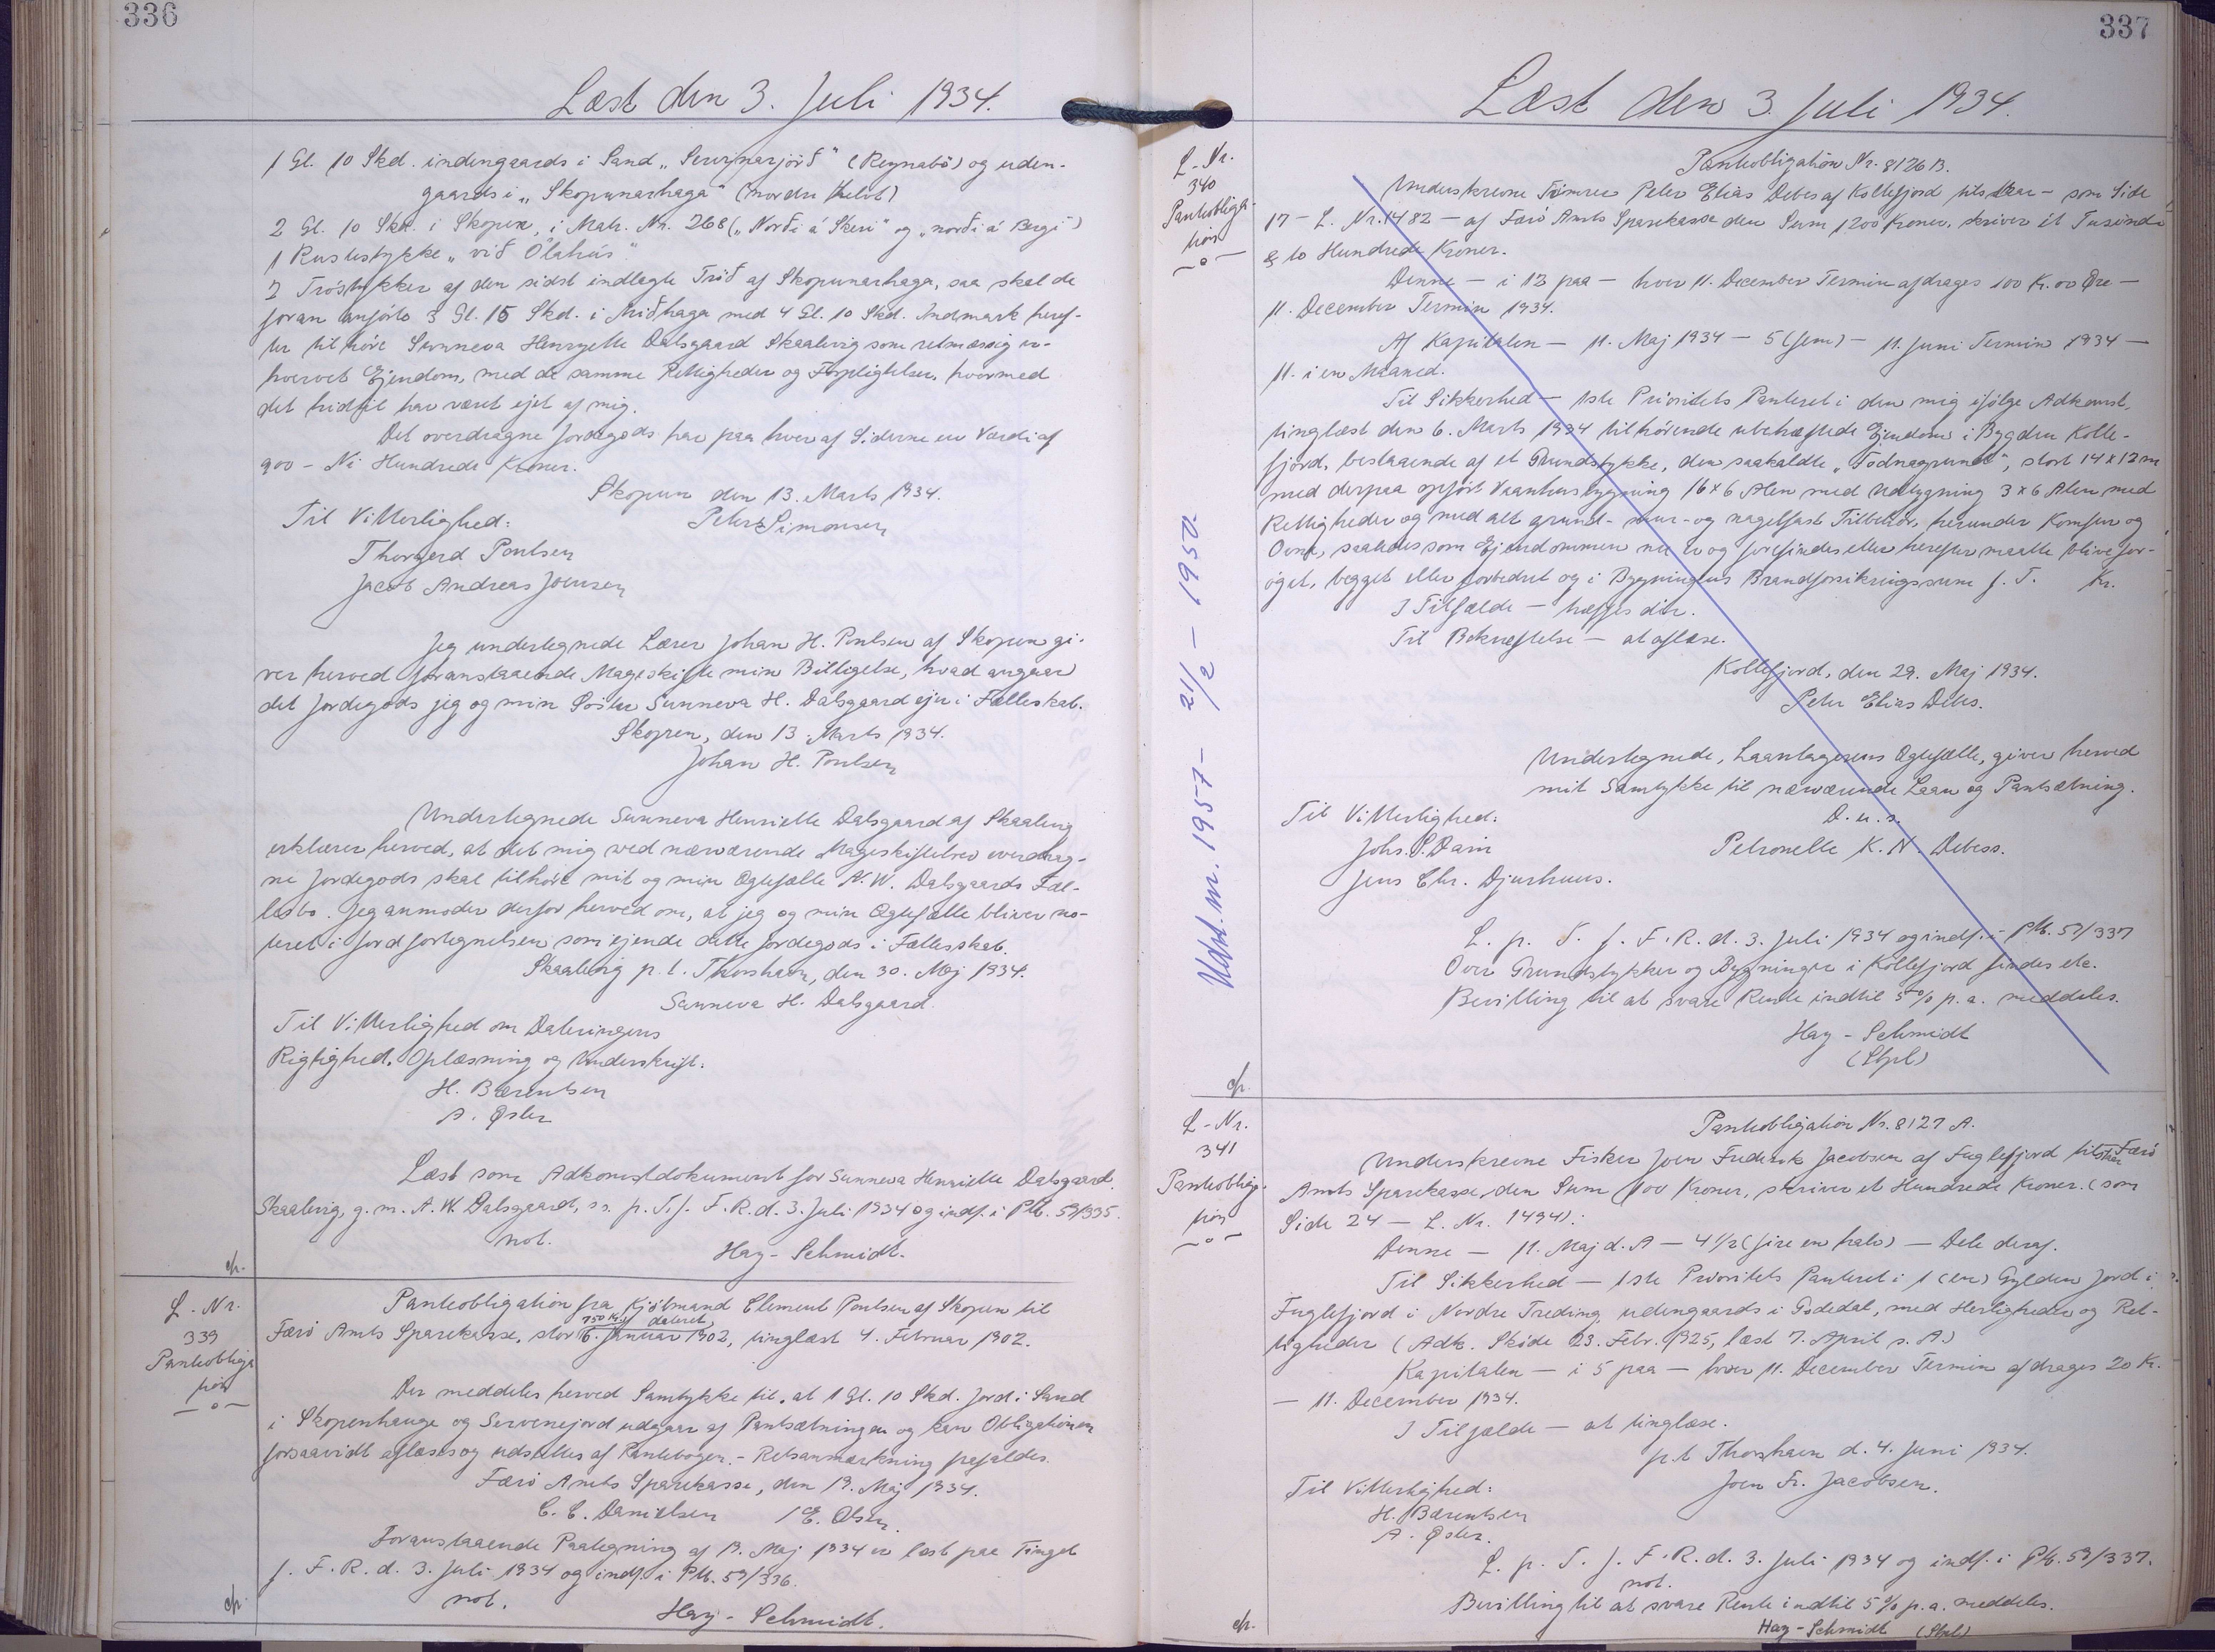 336
Læst den 3. Juli 1934.
1 Gl. 10 Skd. indengaards i Sand „Servinarjörð“ (Reynabö) og uden-
gaards i „Skopunarhaga“ (nordre
2 Gl. 10 Skd. i Skopun, i Matr. Nr. 268 („Norði á Skeri“ og „norði á Bergi“)
1 stykke „við Ólahús“
2 Tröstykker af den sidst indlagte Tröð af Skopunarhaga, saa skal de
foran anförte 3 Gl. 15 Skd. i Miðhaga med 4 Gl. 10 Skd. Indmark heref-
ter tilhöre Sunneva Henryette Dalsgaard Skaalevig som retmæssig er-
hvervet Ejendom, med de samme Rettigheder og Forpligtelser, hvormed
det hidtil har været ejet af mig.
Det overdragne Jordegods har paa hver af Siderne en Værdi af
900 - Ni Hundrede Kroner.
Skopun den 13. Marts 1934.
Til Vitterlighed: Peter Simonsen
Thorgerd Poulsen
Jacob Andreas Joensen
Jeg undertegnede Lærer Johan H. Poulsen af Skopun gi-
ver herved foranstaaende Mageskifte min Billigelse, hvad angaar
det Jordegods jeg og min Söster Sunneva H. Dalsgaard ejer i Fælleskab.
Skopun, den 13. Marts 1934.
Johan H. Poulsen
Undertegnede Sunneva Henriette Dalsgaard af Skaalevig
erklærer herved, at det mig ved nærværende Mageskiftebrev overdrag-
ne Jordegods skal tilhöre mit og min Ægtefælle A. W. Dalsgaards Fæl-
lesbo. Jeg anmoder derfor herved om, at jeg og min Ægtefælle bliver no-
teret i Jordfortegnelsen som ejende dette Jordegods i Fællesskab.
Skaalevig p. t. Thorshavn, den 30. Maj 1934.
Sunneva H. Dalsgaard.
Til Vitterlighed om Dateringens
Rigtighed, Oplæsning og Underskrift.
H. Bærentsen
A. Öster
Læst som Adkomstdokument for Sunneva Henriette Dalsgaard,
Skaalevig, g. m. A. W. Dalsgaard, ss. p. T. f. F. R. d. 3. Juli 1934 og indf. i Ptb. 59/335.
not.
Hay-Schmidt.
cfr.
L. Nr.
339
Pantobliga
tion
—o—
Pantobligation fra Kjöbmand Clement Poulsen af Skopun til
Færö Amts Sparekasse, stor 750 Kr., dateret 6. Januar 1902, tinglæst 4. Februar 1902.
Der meddeles herved Samtykke til, at 1 Gl. 10 Skd. Jord i Sand
i Skopenhauge og Servenejord udgaar af Pantsætningen og kan Obligationen
forsaavidt aflæses og udslettes af Pantebogen. - Retsanmærkning frafaldes.
Færö Amts Sparekasse, den 19. Maj 1934.
C. C. Danielsen / E. Olsen.
Foranstaaende Paategning af 19. Maj 1934 er læst paa Tinget
f. F. R. d. 3. Juli 1934 og indf. i Ptb. 59/336.
not.
Hay-Schmidt.
cfr.
337
Læst den 3. Juli 1934.
L-Nr.
340
Pantobliga-
tion
—o—
Pantobligation Nr. 8126 B.
Underskrevne Tömrer Peter Elias Debes af Kollefjord tilstaar - som Side
17 - L. Nr. 1482 - af Færö Amts Sparekasse den Sum 1200 Kroner, skriver et Tusinde
& to Hundrede Kroner.
Denne - i 12 paa - hver 11. December Termin afdrages 100 Kr. 00 Øre -
11. December Termin 1934.
Af Kapitalen - 11. Maj 1934 - 5 (fem) - 11. Juni Termin 1934 -
11. i en Maaned.
Til Sikkerhed - 1ste Prioritets Panteret i den mig ifölge Adkomst,
tinglæst den 6. Marts 1934 tilhörende ubehæftede Ejendom i Bygden Kolle-
fjord, bestaaende af et Grundstykke, den saakaldte „Todnagrund“, stort 14 x 12 m
med derpaa opfört Vaanhusbygning 16 x 6 Alen med Udbygning 3 x 6 Alen med
Rettigheder og med alt grund- mur- og nagelfast Tilbehör, herunder Komfur og
Ovne, saaledes som Ejendommen nu er og forefindes eller herefter maatte blive for-
öget, bygget eller forbedret og i Bygningens Brandforsikringssum f. T. Kr.
I Tilfælde - træffes dér.
Til Bekræftelse - at aflæse.
Kollefjord, den 29. Maj 1934.
Peter Elias Debes.
Undertegnede, Laantagerens Ægtefælle, giver herved
mit Samtykke til nærværende Laan og Pantsætning.
Til Vitterlighed: D. u. s.
Johs. P. Dam Petronelle K. N. Debess.
Jens Chr. Djurhuus.
L. p. T. f. F. R. d. 3. Juli 1934 og indf. i Ptb. 59/337
Over Grundstykker og Bygninger i Kollefjord findes etc.
Bevilling til at svare Rente indtil 5% p. a. meddeles.
Hay-Schmidt
(Stpl)
cfr.
Udsl. nr. 1957 - 21/2 - 1950.
L-Nr.
341
Pantobliga-
tion
—o—
Pantobligation Nr. 8127 A.
Underskrevne Fisker Joen Frederik Jacobsen af Fuglefjord tilstaar Færö
Amts Sparekasse, den Sum 100 Kroner, skriver et Hundrede Kroner. (som
Side 24 - L. Nr. 1494):
Denne - 11. Maj d. A - 4 1/2 (fire en halv) - Dele deraf.
Til Sikkerhed - 1ste Prioritets Panteret i 1 (en) Gylden Jord i
Fuglefjord i Nordre Treding, udengaards i Godedal, med Herligheder og Ret-
tigheder (Adk. Sköde 23. Febr. 1925, læst 7. April s. A.)
Kapitalen - i 5 paa - hver 11. December Termin afdrages 20 Kr.
- 11. December 1934.
I Tilfælde - at tinglæse.
p.t Thorshavn d. 4. Juni 1934.
Til Vitterlighed: Joen Fr. Jacobsen.
H. Bærentsen
A. Öster.
L. p. T. f. F. R. d. 3. Juli 1934 og indf. i Ptb. 59/337.
not.
Bevilling til at svare Rente indtil 5% p. a. meddeles.
Hay-Schmidt (Stpl)
cfr.